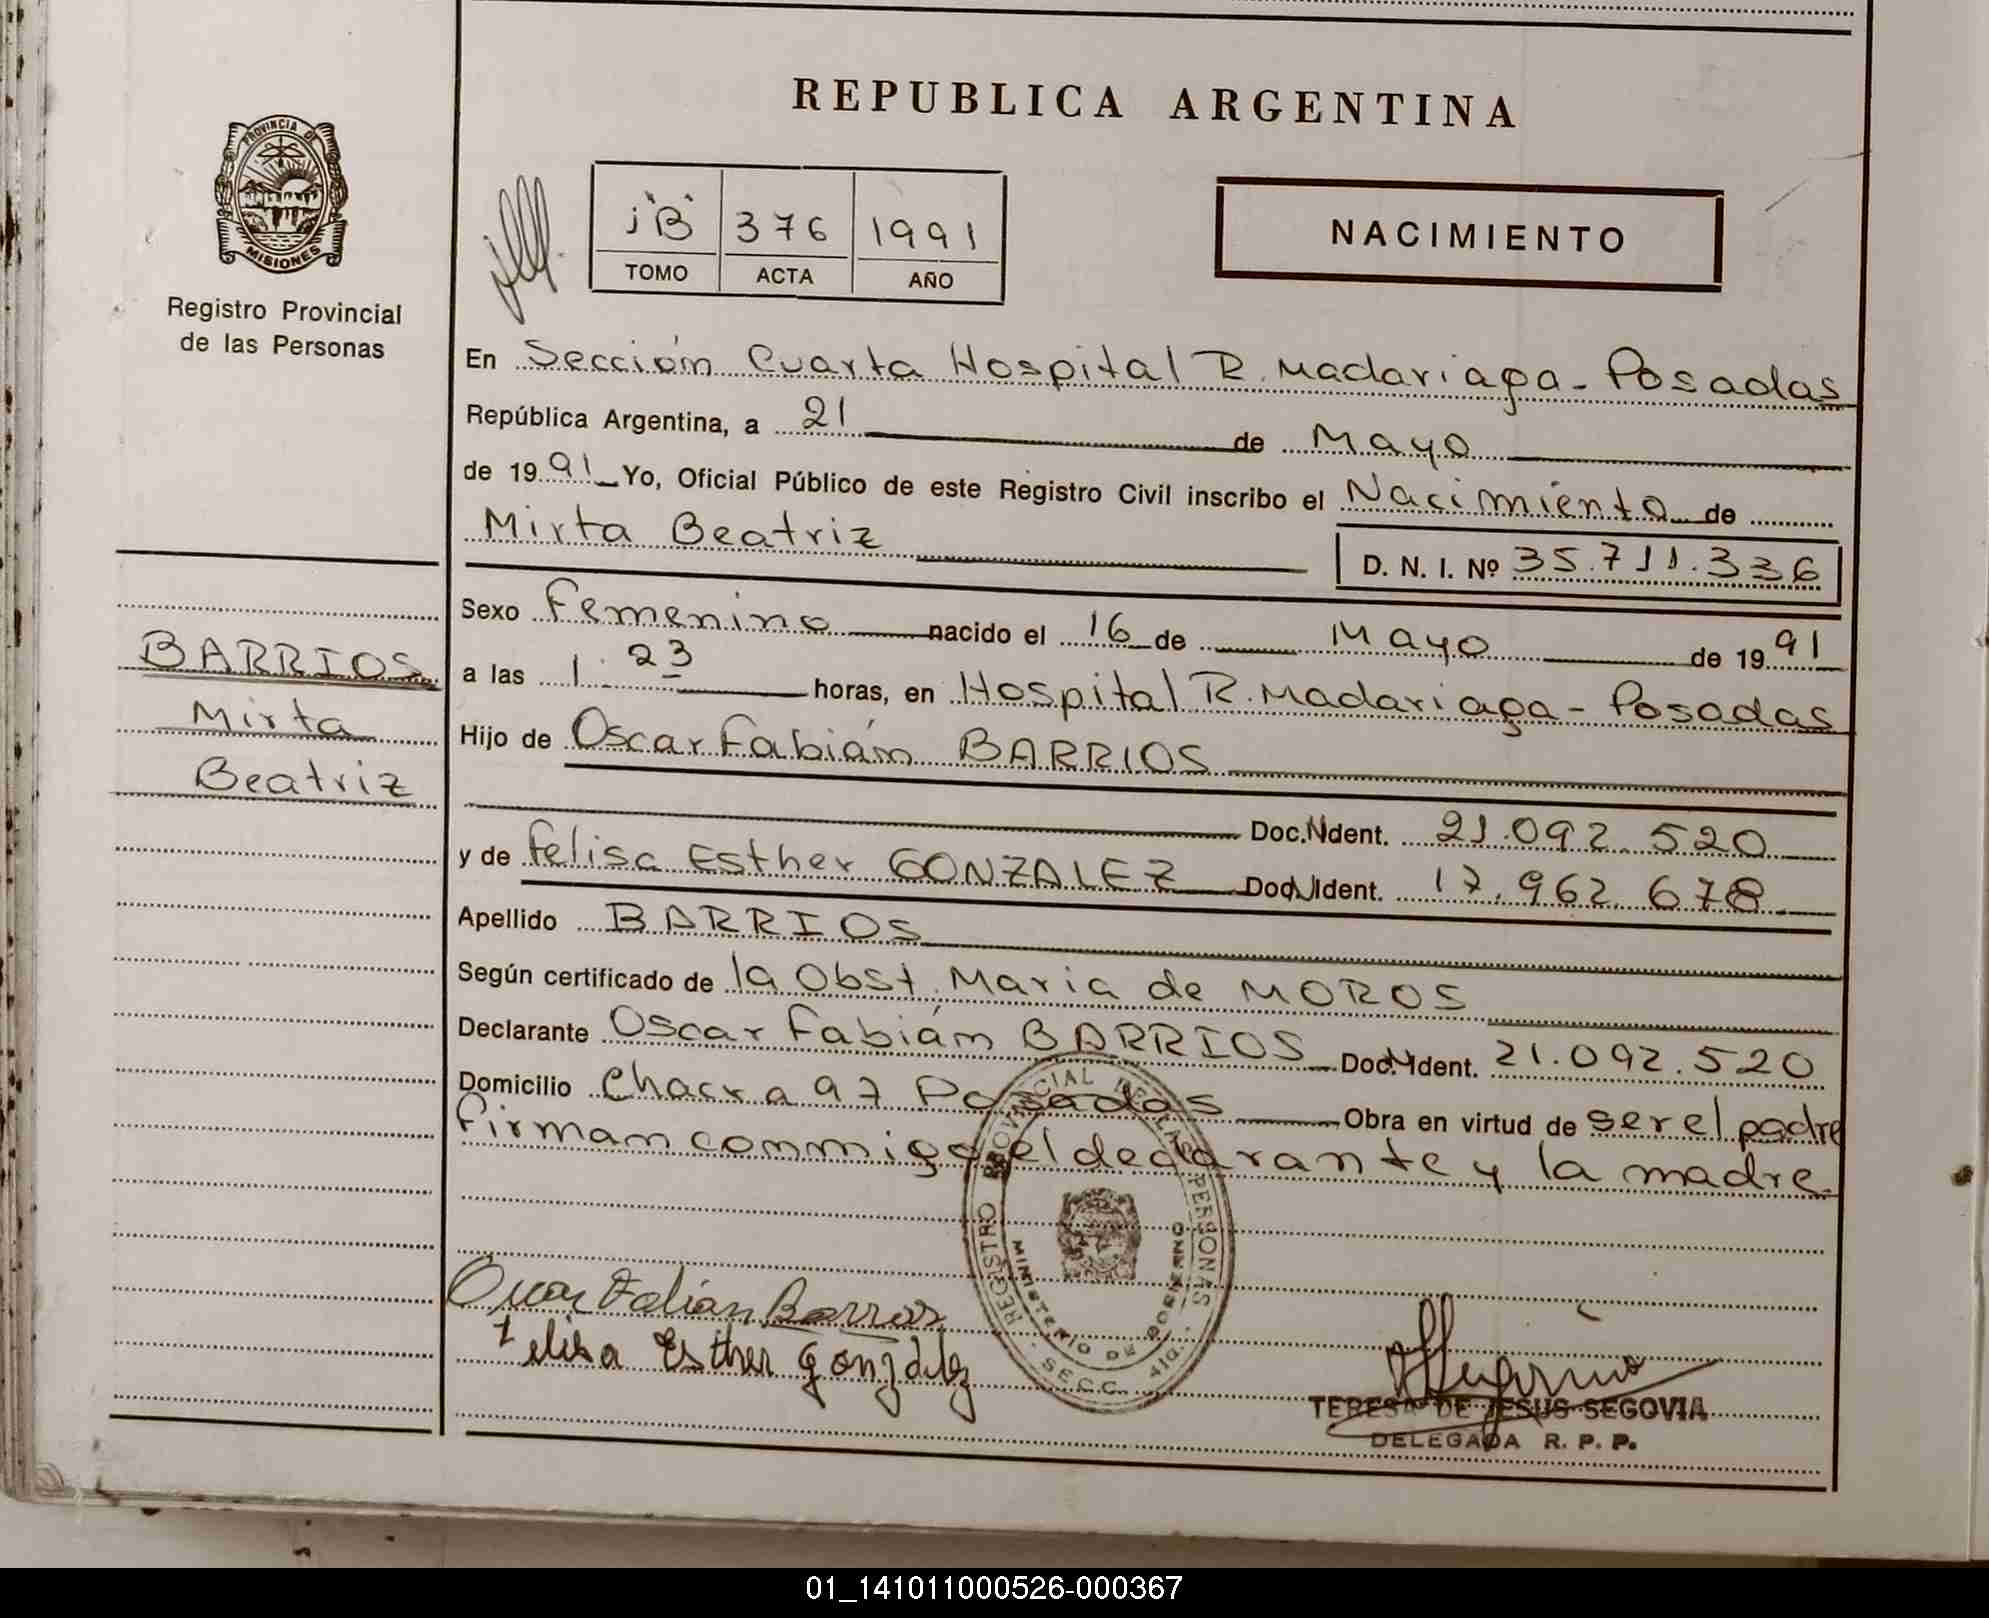 REPUBLICA ARGENTINA
PROVINCIA DE
MISIONES
Registro Provincial
de las Personas
1"B" 376 1991
TOMO ACTA AÑO
NACIMIENTO
En Sección Cuarta Hospital R. Madariaga - Posadas
República Argentina, a 21 de Mayo
de 1991 Yo, Oficial Público de este Registro Civil inscribo el Nacimiento de
Mirta Beatriz
D. N. I. Nº 35.711.336
Sexo Femenino nacido el 16 de Mayo de 1991
BARRIOS
Mirta
Beatriz
a las 1:23 horas, en Hospital R. Madariaga - Posadas
Hijo de Oscar Fabián BARRIOS
Doc. Ident. 21.092.520
y de Felisa Esther GONZALEZ Doc. Ident. 17.962.678
Apellido BARRIOS
Según certificado de la Obst. Maria de MOROS
Declarante Oscar Fabián BARRIOS Doc. Ident. 21.092.520
Domicilio Chacra 97 Posadas Obra en virtud de ser el padre
Firman conmigo el declarante y la madre.
REGISTRO PROVINCIAL DE LAS PERSONAS
MINISTERIO DE GOBIERNO
SECC. 4ta.
Oscar Fabián Barrios
Felisa Esther González
TERESA DE JESUS SEGOVIA
DELEGADA R. P. P.
01_141011000526-000367